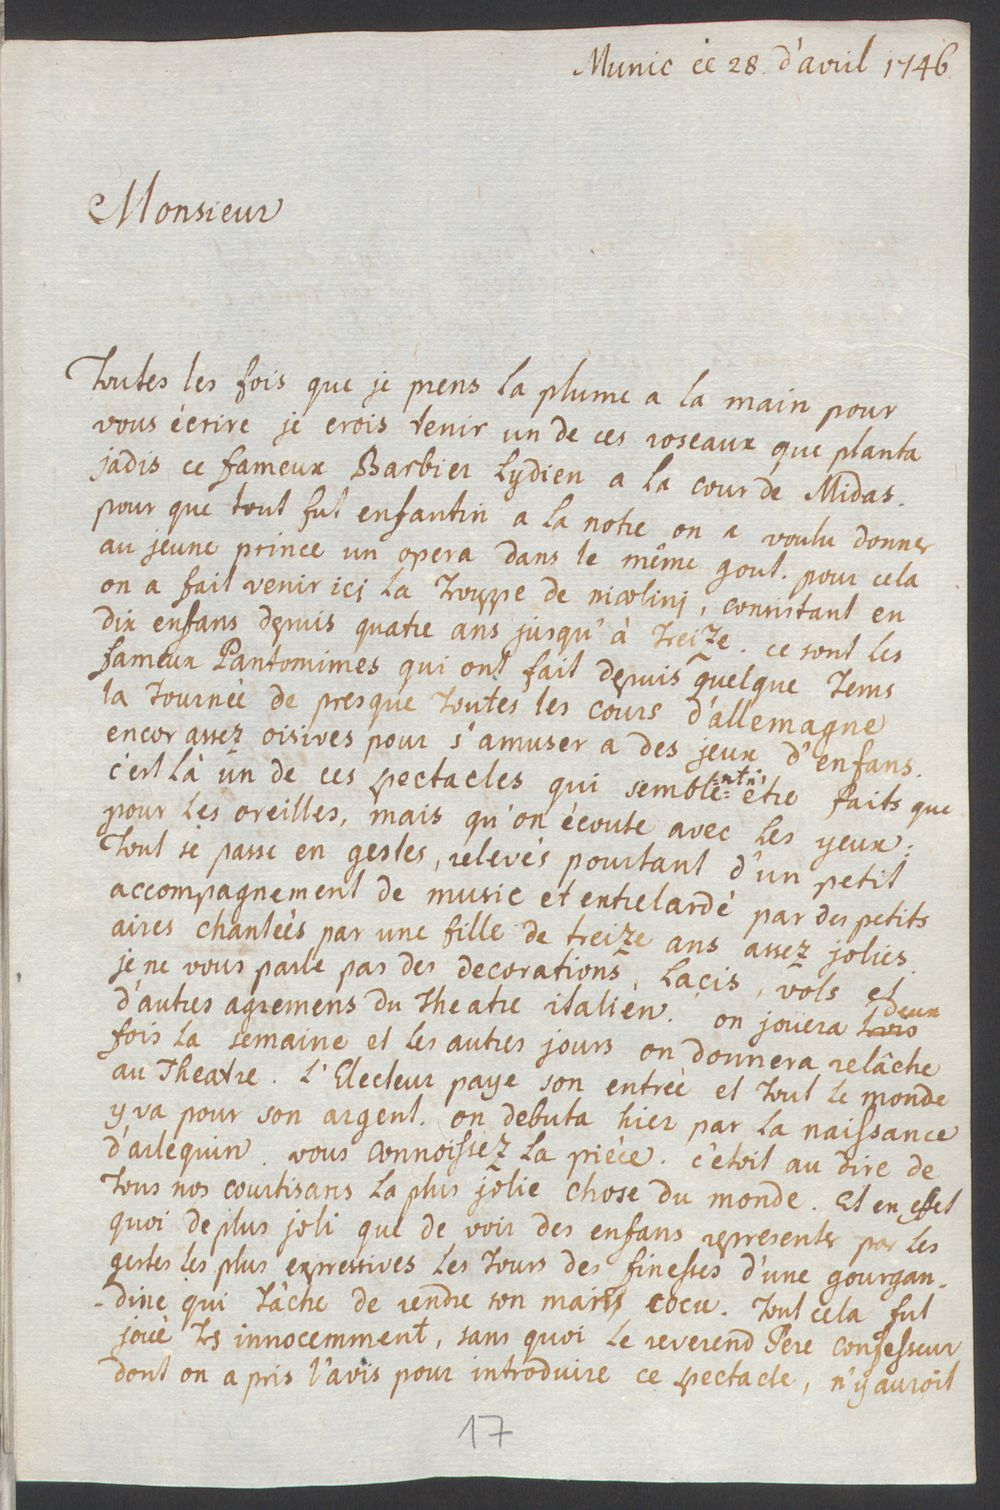 Munic ce 28. d'avril 1746.
Monsieur
Toutes les fois que je prens la plume a la main pour
vous écrire je crois tenir un de ces roseaux que planta
jadis ce fameux Barbier Lydien a la cour de Midas.
pour que tout fut enfantin a la notre on a voulu donner
au jeune prince un opera dans le même gout. pour cela
on a fait venir ici la Trouppe de nicolini, consistant en
dix enfans depuis quatre ans jusqu'à treize. ce sont les
fameux Pantomimes qui ont fait depuis quelque tems
la tournée de presque toutes les cours d'allemagne
encor assez oisives pour s'amuser a des jeux d'enfans.
c'est là un de ces spectacles qui semblent n'être faits que
pour les oreilles, mais qu'on écoute avec les yeux:
Tout se passe en gestes, relevés pourtant d'un petit
accompagnement de music et entrelardé par des petits
aires chanteés par une fille de treize ans assez jolies.
je ne vous parle pas des decorations, lacis, vols et
d'autres agremens du theatre italien. on joüera trois deux
fois la semaine et les autres jours on donnera relâche
au Theatre. L'Electeur paye son entrée et tout le monde
y va pour son argent. on debuta hier par la naissance
d'arlequin. vous connoissez la pièce. c'etoit au dire de
tous nos courtisans la plus jolie chose du monde. Et en effet
quoi de plus joli que de voir des enfans representer par les
gestes les plus expressives les tours des finesses d'une gourgan-
-dine qui tâche de rendre son mary cocu. tout cela fut
joüé trs innocemment, sans quoi le reverend Pere confesseur
dont on a pris l'avis pour introduire ce spectacle, n'y auroit
17